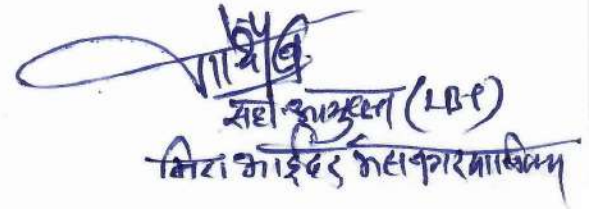 सहा. आयुक्त (LBT)
मिरा भाईंदर महानगरपालिका